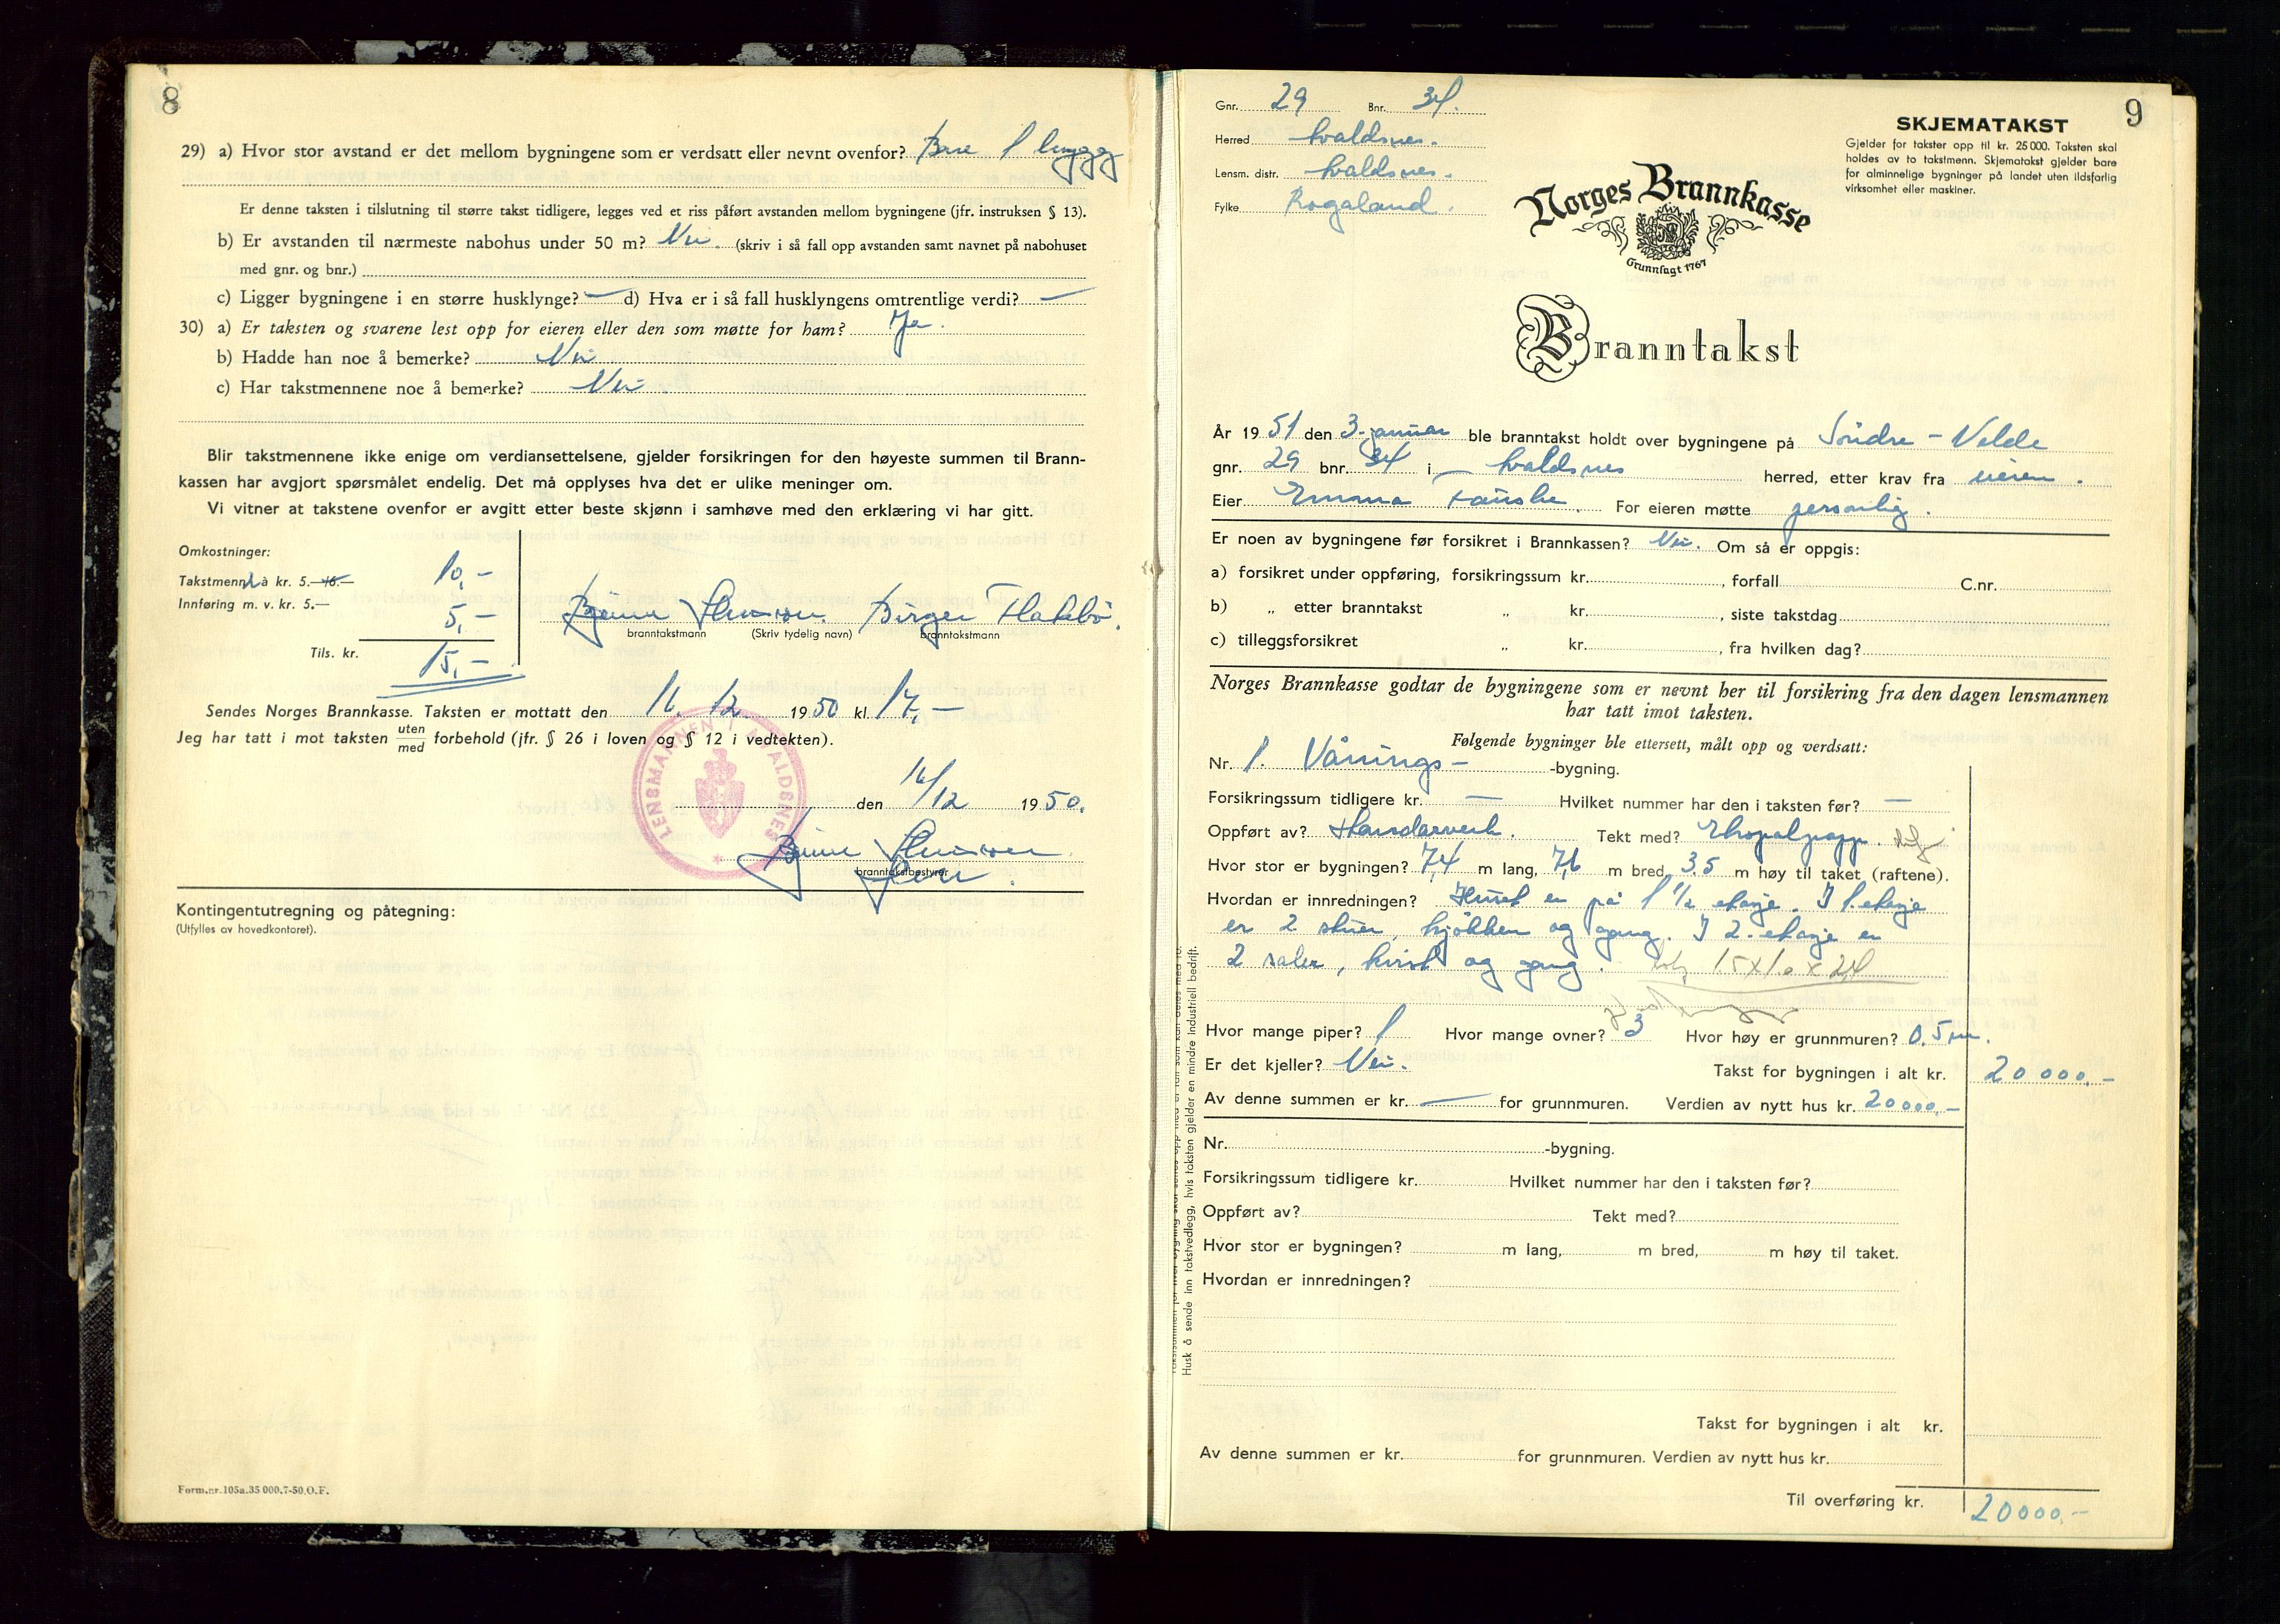 8
29) a) Hvor stor avstand er det mellom bygningene som er verdsatt eller nevnt ovenfor? Bare 1 bygg
Er denne taksten i tilslutning til større takst tidligere, legges ved et riss påført avstanden mellom bygningene (jfr. instruksen § 13).
b) Er avstanden til nærmeste nabohus under 50 m? Nei. (skriv i så fall opp avstanden samt navnet på nabohuset
med gnr. og bnr.)
c) Ligger bygningene i en større husklynge? — d) Hva er i så fall husklyngens omtrentlige verdi? —
30) a) Er taksten og svarene lest opp for eieren eller den som møtte for ham? Ja.
b) Hadde han noe å bemerke? Nei
c) Har takstmennene noe å bemerke? Nei.
Blir takstmennene ikke enige om verdiansettelsene, gjelder forsikringen for den høyeste summen til Brann-
kassen har avgjort spørsmålet endelig. Det må opplyses hva det er ulike meninger om.
Vi vitner at takstene ovenfor er avgitt etter beste skjønn i samhøve med den erklæring vi har gitt.
Omkostninger:
Takstmenn à kr. 5.— 10.— 10,-
Innføring m. v. kr. 5.— 5,-
Tils. kr. 15,-
Birger Flatebö.
branntakstmann (Skriv tydelig navn) branntakstmann
Sendes Norges Brannkasse. Taksten er mottatt den 16. 12. 1950 kl. 17,-
Jeg har tatt i mot taksten uten/med forbehold (jfr. § 26 i loven og § 12 i vedtekten).
LENSMANNEN I AVALDSNES
den 16/12 1950.
branntakstbestyrer
Kontingentutregning og påtegning:
(Utfylles av hovedkontoret).
Form.nr.105a.35 000.7-50.O.F.
9
Gnr. 29 Bnr. 34.
Herred Avaldsnes.
Lensm. distr. Avaldsnes.
Fylke Rogaland.
SKJEMATAKST
Gjelder for takster opp til kr. 25 000. Taksten skal
holdes av to takstmenn. Skjematakst gjelder bare
for alminnelige bygninger på landet uten ildsfarlig
virksomhet eller maskiner.
Norges Brannkasse
Grunnlagt 1767
Branntakst
År 1951 den 3. januar ble branntakst holdt over bygningene på Söndre - Velde
gnr. 29 bnr. 34 i Avaldsnes herred, etter krav fra eieren.
Eier Emma . For eieren møtte personlig.
Er noen av bygningene før forsikret i Brannkassen? Nei. Om så er oppgis:
a) forsikret under oppføring, forsikringssum kr. , forfall C.nr.
b) „ etter branntakst „ kr. , siste takstdag
c) tilleggsforsikret „ kr. , fra hvilken dag?
Norges Brannkasse godtar de bygningene som er nevnt her til forsikring fra den dagen lensmannen
har tatt imot taksten.
Følgende bygninger ble ettersett, målt opp og verdsatt:
Nr. 1. Vånings- -bygning.
Forsikringssum tidligere kr. — Hvilket nummer har den i taksten før? —
Oppført av? Tekt med?
Hvor stor er bygningen? 7,4 m lang, 7,6 m bred 3,5 m høy til taket (raftene).
Hvordan er innredningen? Huset er på 1 1/2 etasje. I 1. etasje
er 2 stuer, kjökken og gang. I 2. etasje er
2 saler, kvist og gang. 1.5 x 1.0 x 2,4
Hvor mange piper? 1 Hvor mange ovner? 3 Hvor høy er grunnmuren? 0.5 m.
Er det kjeller? Nei. Takst for bygningen i alt kr. 20 000.-
Av denne summen er kr. — for grunnmuren. Verdien av nytt hus kr. 20 000.-
Nr. -bygning.
Forsikringssum tidligere kr. Hvilket nummer har den i taksten før?
Oppført av? Tekt med?
Hvor stor er bygningen? m lang, m bred, m høy til taket.
Hvordan er innredningen?
Takst for bygningen i alt kr.
Av denne summen er kr. for grunnmuren. Verdien av nytt hus kr.
Til overføring kr. 20 000.-
Husk å sende inn takstvedlegg, hvis taksten gjelder en mindre industriell bedrift.